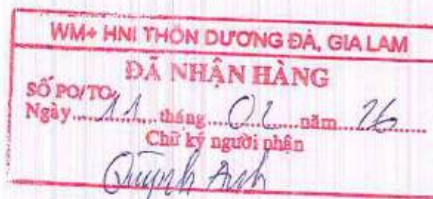 WM+ HNI THÔN DƯƠNG ĐÁ, GIA LAM
ĐÃ NHẬN HÀNG
SỐ PO/TO:
Ngày 11 tháng 02 năm 26
Chữ ký người nhận
Quỳnh Anh